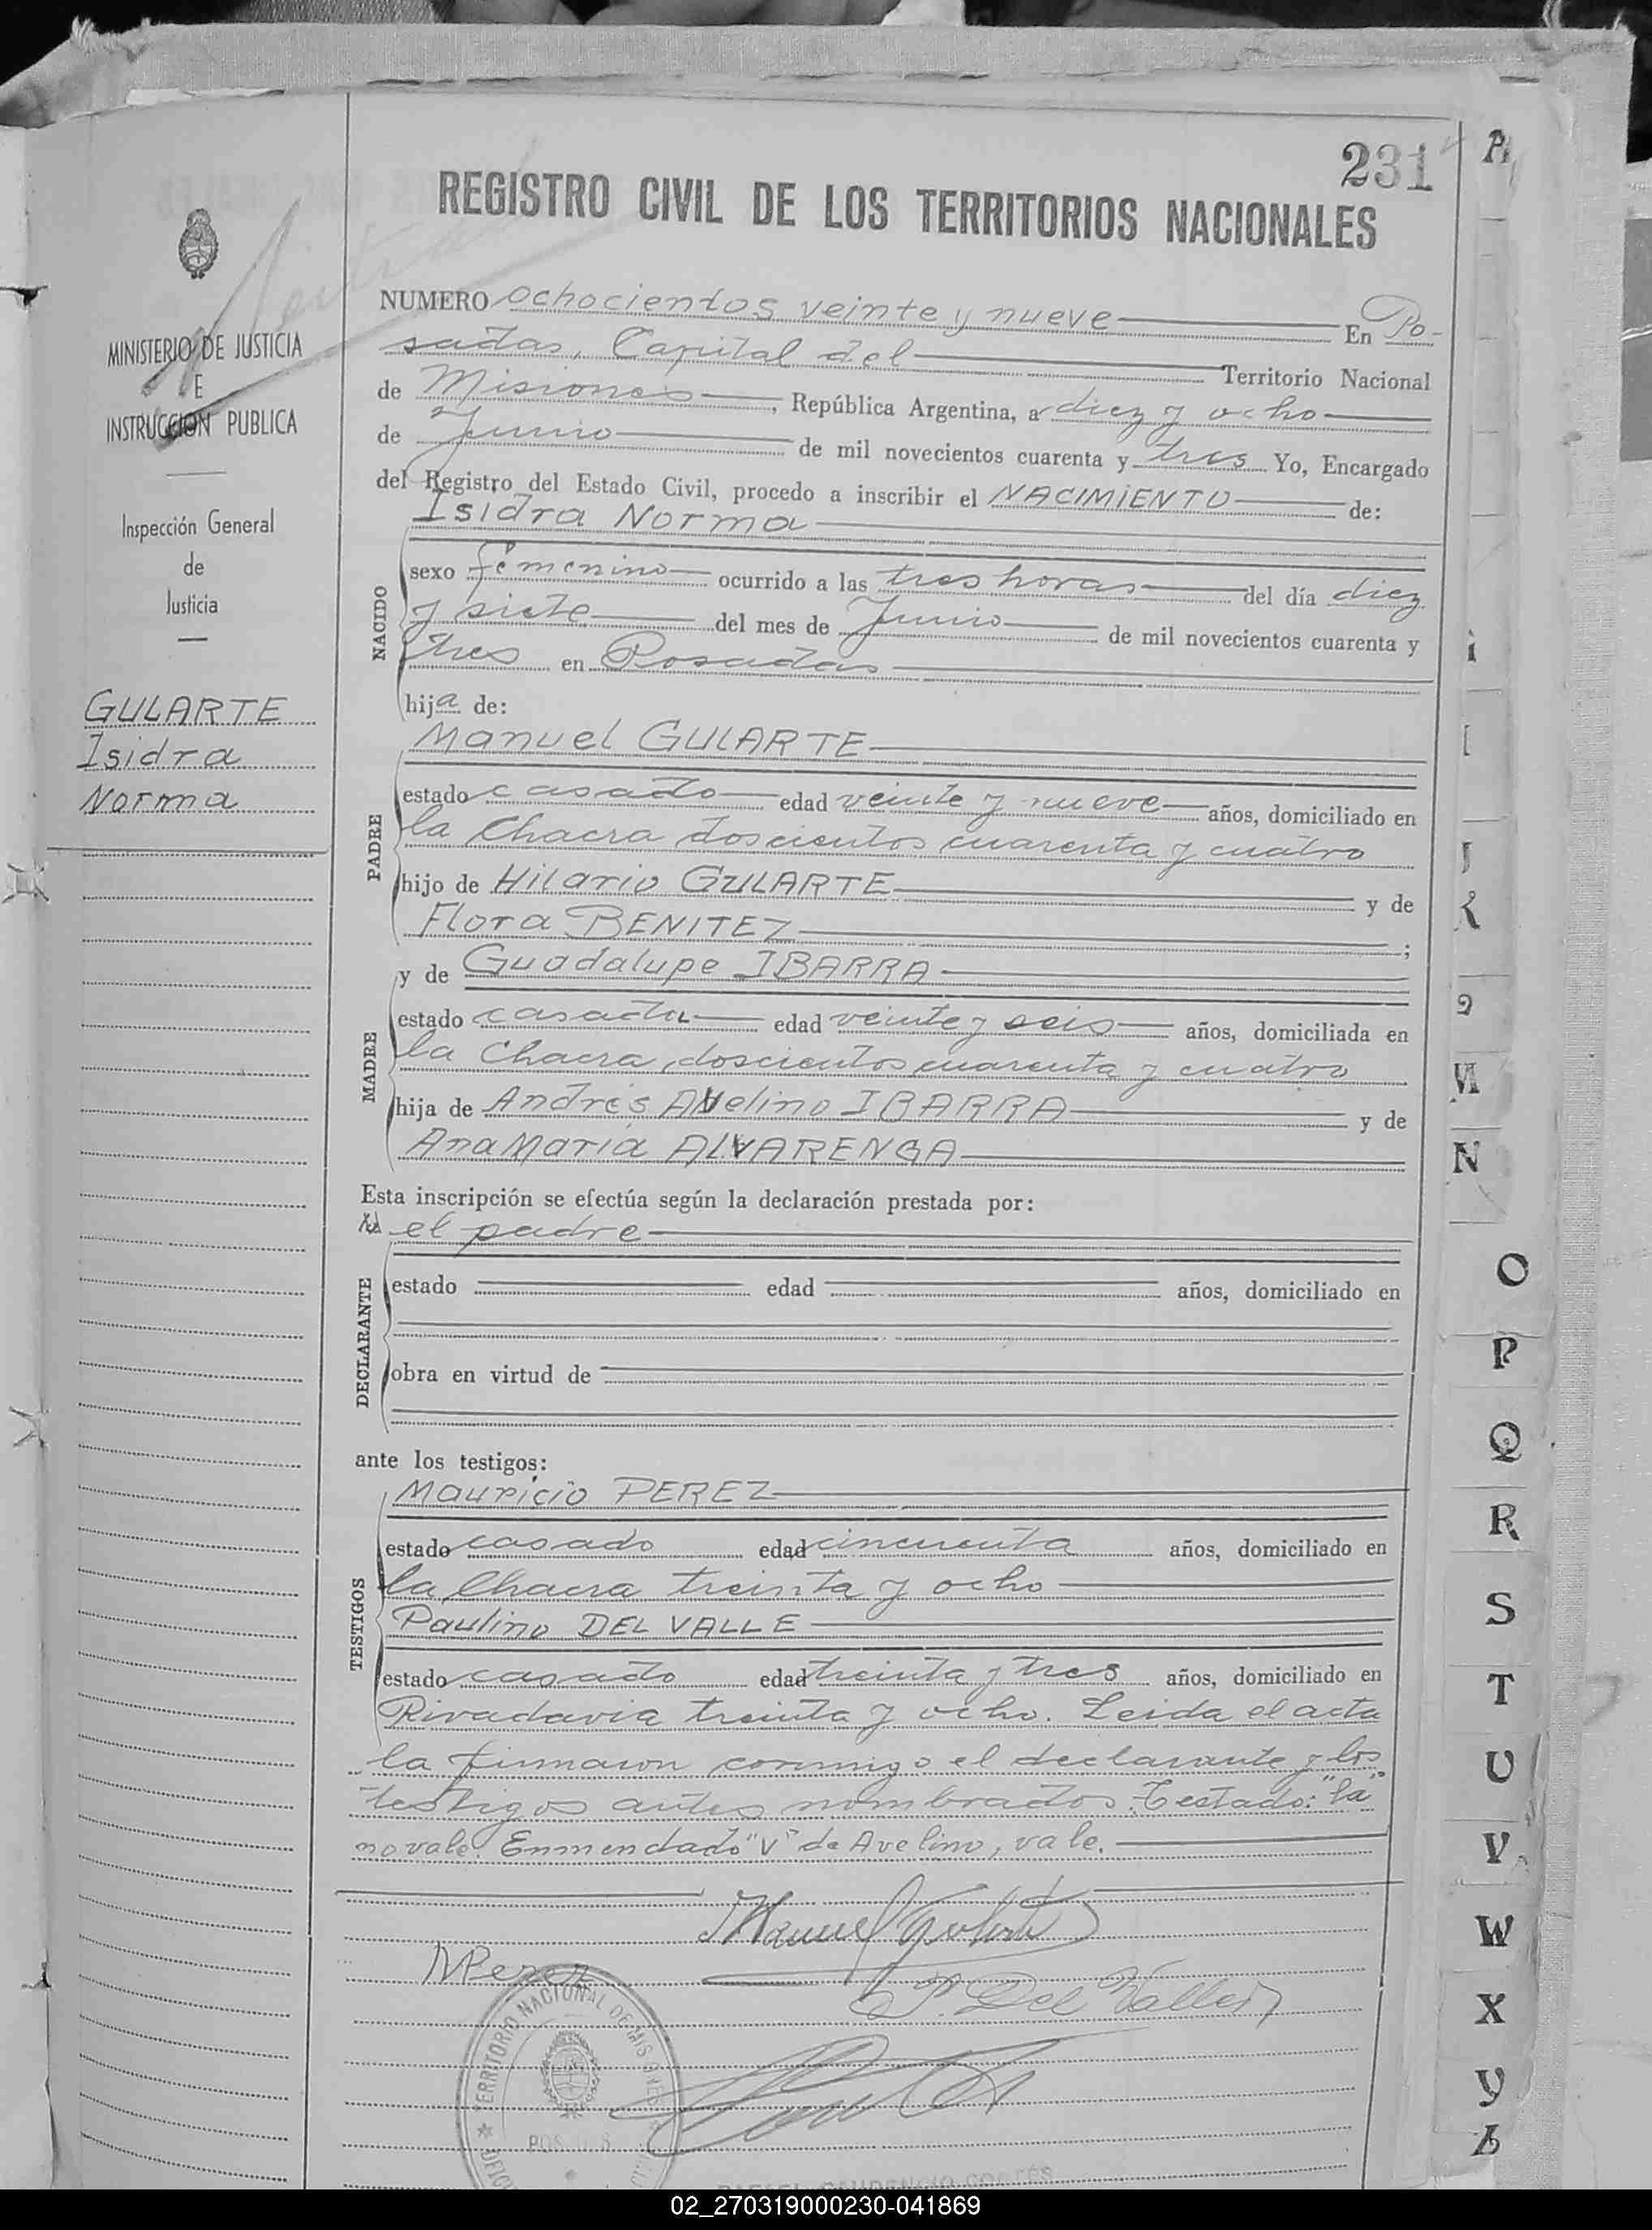 231
REGISTRO CIVIL DE LOS TERRITORIOS NACIONALES
MINISTERIO DE JUSTICIA
E
INSTRUCCION PUBLICA
Inspección General
de
Justicia
GULARTE
Isidra
Norma
NUMERO ochocientos veinte y nueve En Po-
sadas, Capital del Territorio Nacional
de Misiones, República Argentina, a diez y ocho
de Junio de mil novecientos cuarenta y tres Yo, Encargado
del Registro del Estado Civil, procedo a inscribir el NACIMIENTO de:
NACIDO
Isidra Norma
sexo femenino ocurrido a las tres horas del día diez
y siete del mes de Junio de mil novecientos cuarenta y
tres en Posadas
hija de:
PADRE
Manuel GULARTE
estado casado edad veinte y nueve años, domiciliado en
la Chacra doscientos cuarenta y cuatro
hijo de Hilario GULARTE y de
Flora BENITEZ ;
MADRE
y de Guadalupe IBARRA
estado casada edad veinte y seis años, domiciliada en
la Chacra doscientos cuarenta y cuatro
hija de Andrés Avelino IBARRA y de
Ana Maria ALVARENGA
Esta inscripción se efectúa según la declaración prestada por:
el padre
DECLARANTE
estado edad años, domiciliado en
obra en virtud de
ante los testigos:
TESTIGOS
Mauricio PEREZ
estado casado edad cincuenta años, domiciliado en
la Chacra treinta y ocho
Paulino DEL VALLE
estado casado edad treinta y tres años, domiciliado en
Rivadavia treinta y ocho. Leida el acta
la firmaron conmigo el declarante y los
testigos antes nombrados. Testado: "la"
no vale. Enmendado "v" de Avelino, vale.
Manuel Gularte
MPerez
P. Del Valle
TERRITORIO NACIONAL DE MISIONES
POSADAS
A
I
J
K
M
N
O
P
Q
R
S
T
U
V
W
X
Y
Z
02_270319000230-041869